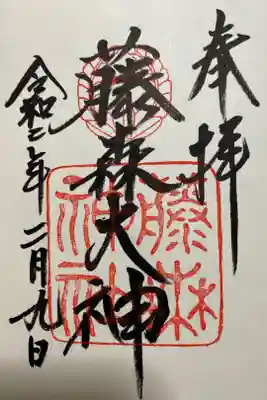 奉拝
藤森大神
令和二年二月九日
藤森
神社